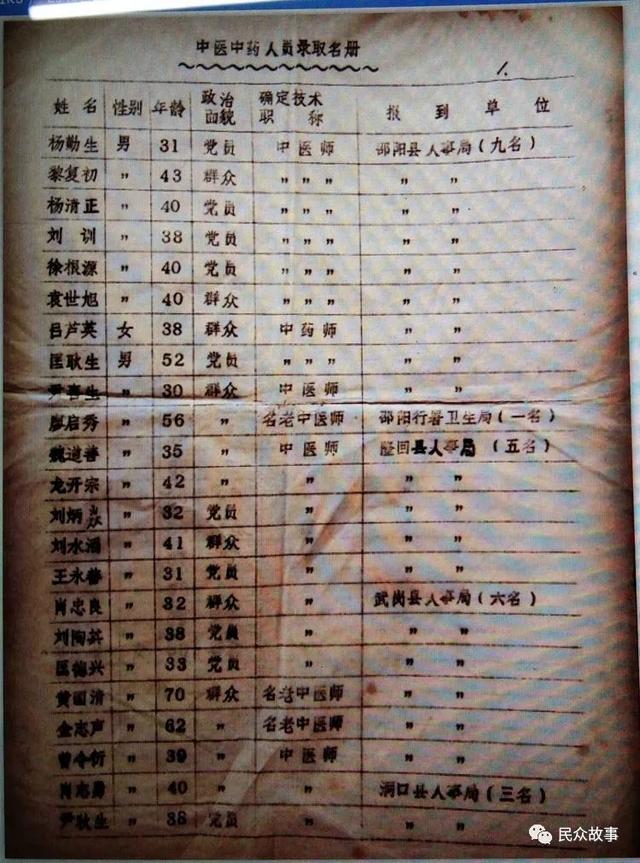 中医中药人员录取名册
1.
姓名 性别 年龄 政治面貌 确定技术职称 报到单位
杨勤生 男 31 党员 中医师 邵阳县人事局(九名)
黎复初 〃 43 群众 〃〃〃 〃 〃
杨清正 〃 40 党员 〃〃〃 〃 〃
刘训 〃 38 党员 〃〃〃 〃 〃
徐根源 〃 40 党员 〃〃〃 〃 〃
袁世旭 〃 40 群众 〃〃〃 〃 〃
吕芦英 女 38 群众 中药师 〃 〃
匡耿生 男 52 党员 〃〃〃 〃 〃
尹喜生 〃 30 群众 中医师 〃 〃
廖启秀 〃 56 〃 名老中医师 邵阳行署卫生局(一名)
魏道善 〃 35 〃 中医师 隆回县人事局(五名)
龙开宗 〃 42 〃 〃 〃 〃
刘炳 〃 32 党员 〃 〃 〃
刘水涵 〃 41 群众 〃 〃 〃
王永善 〃 31 党员 〃 〃 〃
肖忠良 〃 32 群众 〃 武岗县人事局(六名)
刘陶英 〃 38 党员 〃 〃 〃
匡德兴 〃 33 党员 〃 〃 〃
黄国清 〃 70 群众 名老中医师 〃 〃
金志声 〃 62 〃 名老中医师 〃 〃
曾令衍 〃 39 〃 中医师 〃 〃
肖志 〃 40 〃 〃 洞口县人事局(三名)
尹耿生 〃 38 党员 〃 〃 〃
民众故事